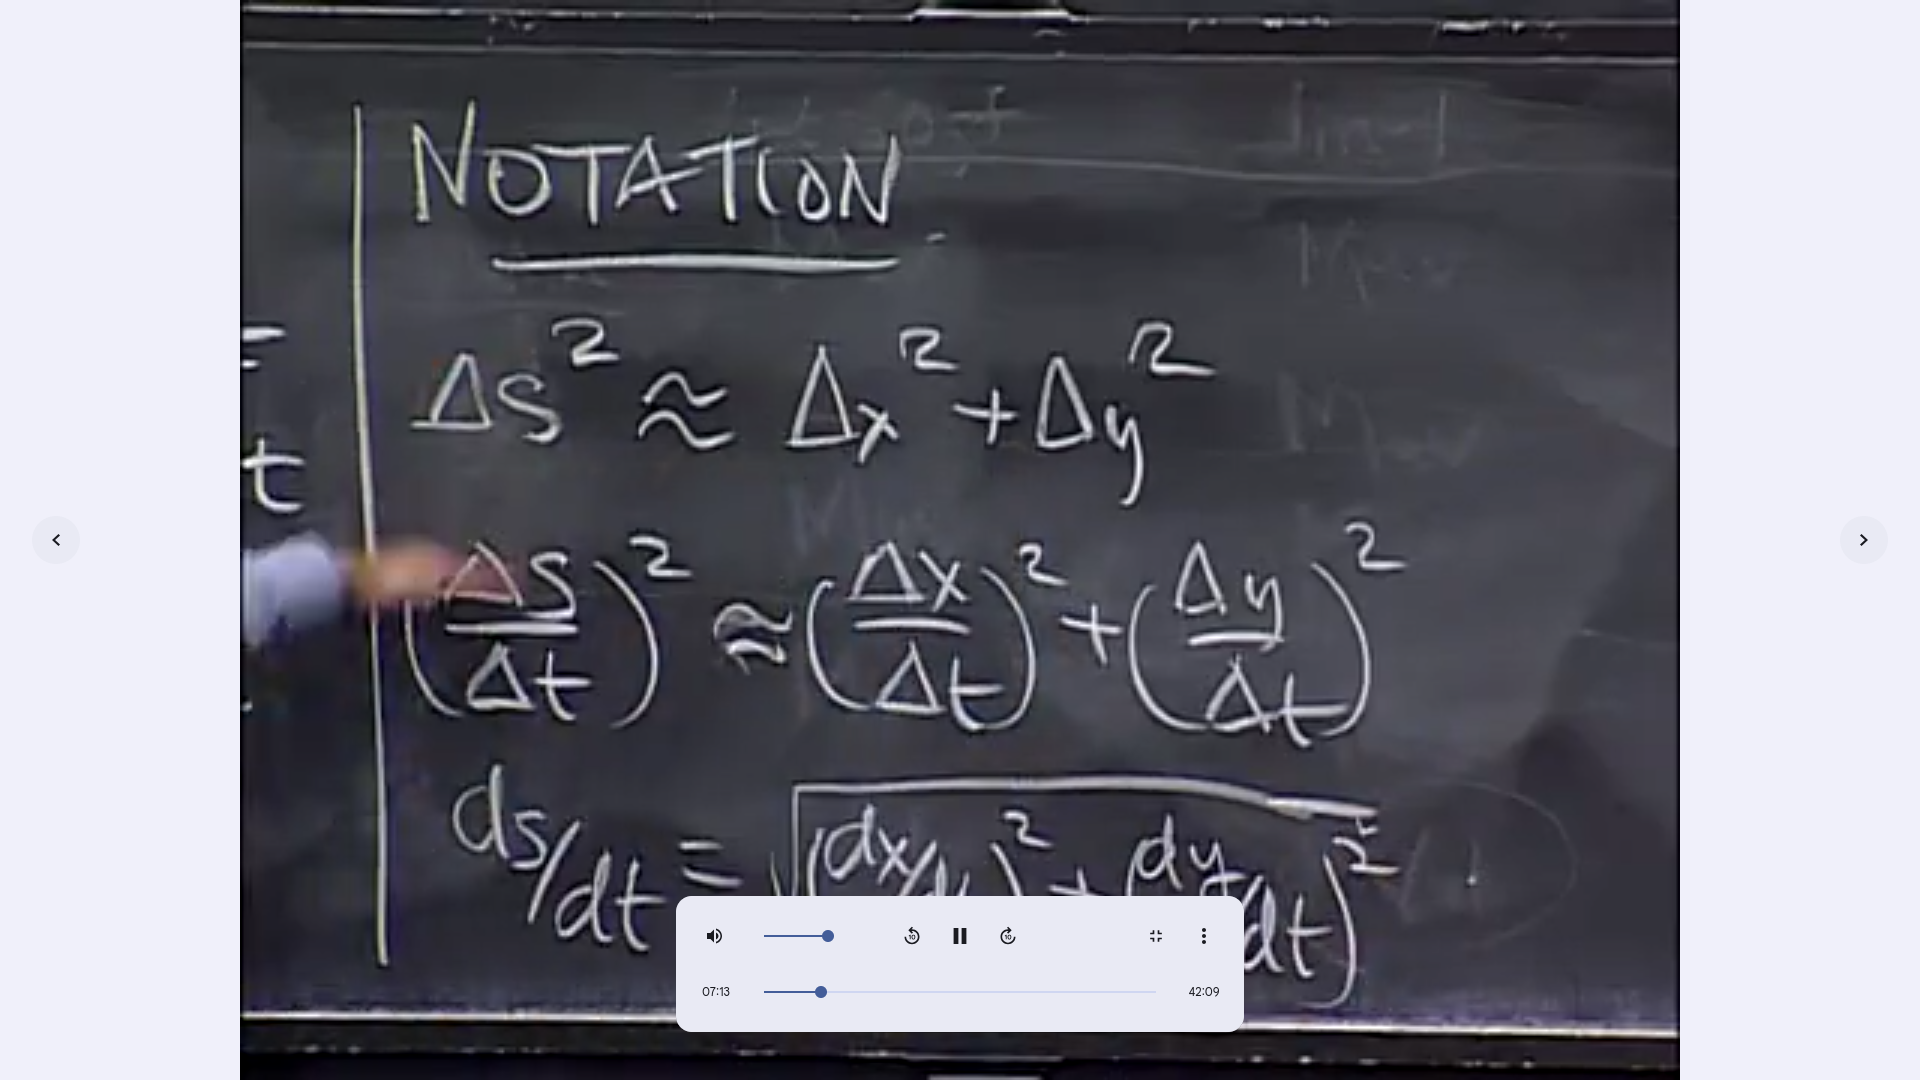 NOTATION
ΔS² ≈ Δx² + Δy²
=
t
(ΔS/Δt)² ≈ (Δx/Δt)² + (Δy/Δt)²
ds/dt = √(dx/d )² + (dy/dt)²
10
10
07:13
42:09